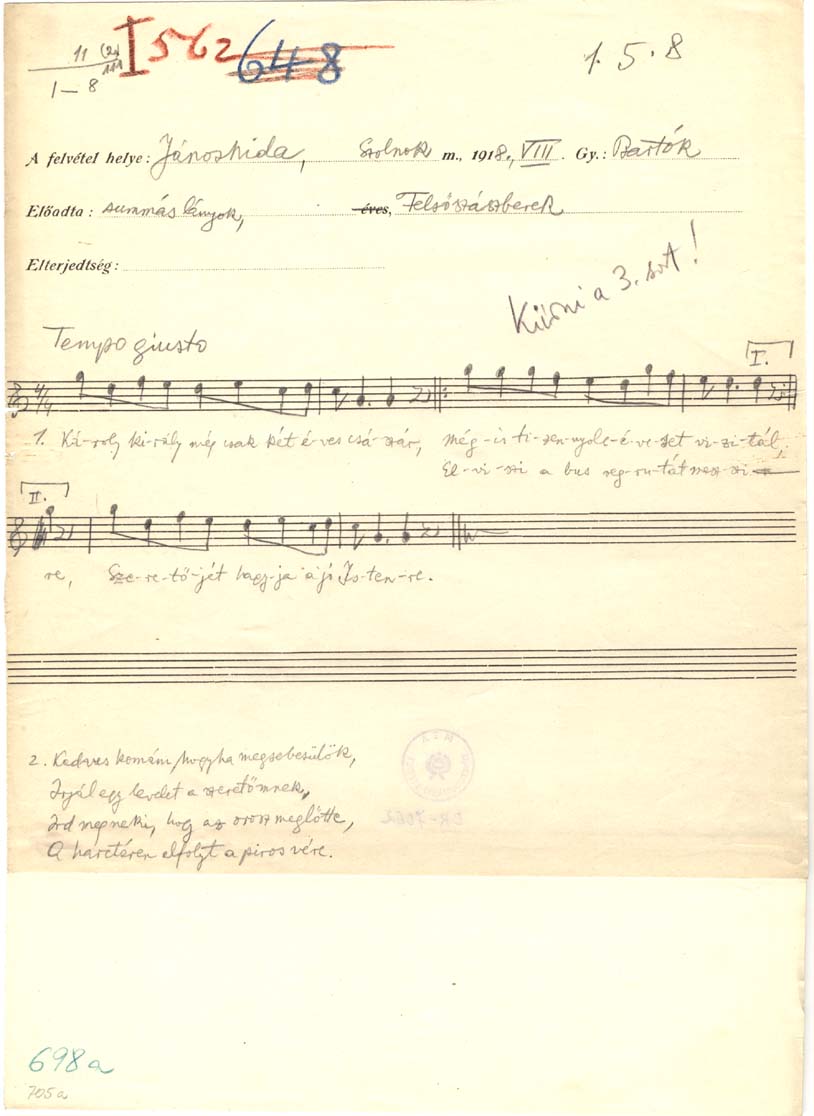 11 (2)
111
I – 8
I 562 648
1. 5. 8
A felvétel helye: Jánoshida, Szolnok m., 1918, VIII. Gy.: Bartók
Előadta: summás lányok, éves, Felsőszászberek
Elterjedtség:
Kiírni a 3. sort!
Tempo giusto
I.
4/4
1. Ká-roly ki-rály még csak két é-ves csá-szár, Még-is ti-zen-nyolc-é-ve-set vi-zi-tál,
El-vi-szi a bus reg-ru-tát mesz-szi-
II.
re, Sze-re-tő-jét hagy-ja a jó Is-ten-re.
2. Kedves komám, hogyha megsebesülök,
Irjál egy levelet a szeretőmnek,
Ird meg neki, hogy az orosz meglőtte,
A harctéren elfolyt a piros vére.
BR-7062
698a
705a